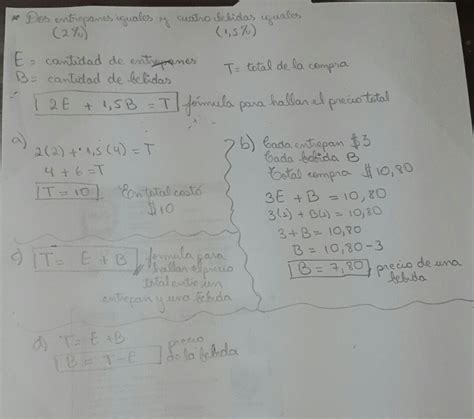 * Dos entrepanes iguales y cuatro bebidas iguales
(2%) (1,5%)
E = cantidad de entrepanes
B = cantidad de bebidas
T = total de la compra
2E + 1,5B = T fórmula para hallar el precio total
a)
2(2) + 1,5(4) = T
4 + 6 = T
T = 10 En total costó
$10
b) Cada entrepan $3
Cada bebida B
Total compra $10,80
3E + B = 10,80
3(1) + B(1) = 10,80
3 + B = 10,80
B = 10,80 - 3
B = 7,80 precio de una
bebida
c) T = E + B fórmula para
hallar el precio
total entre un
entrepan y una bebida
d) T = E + B
B = T - E precio
de la bebida